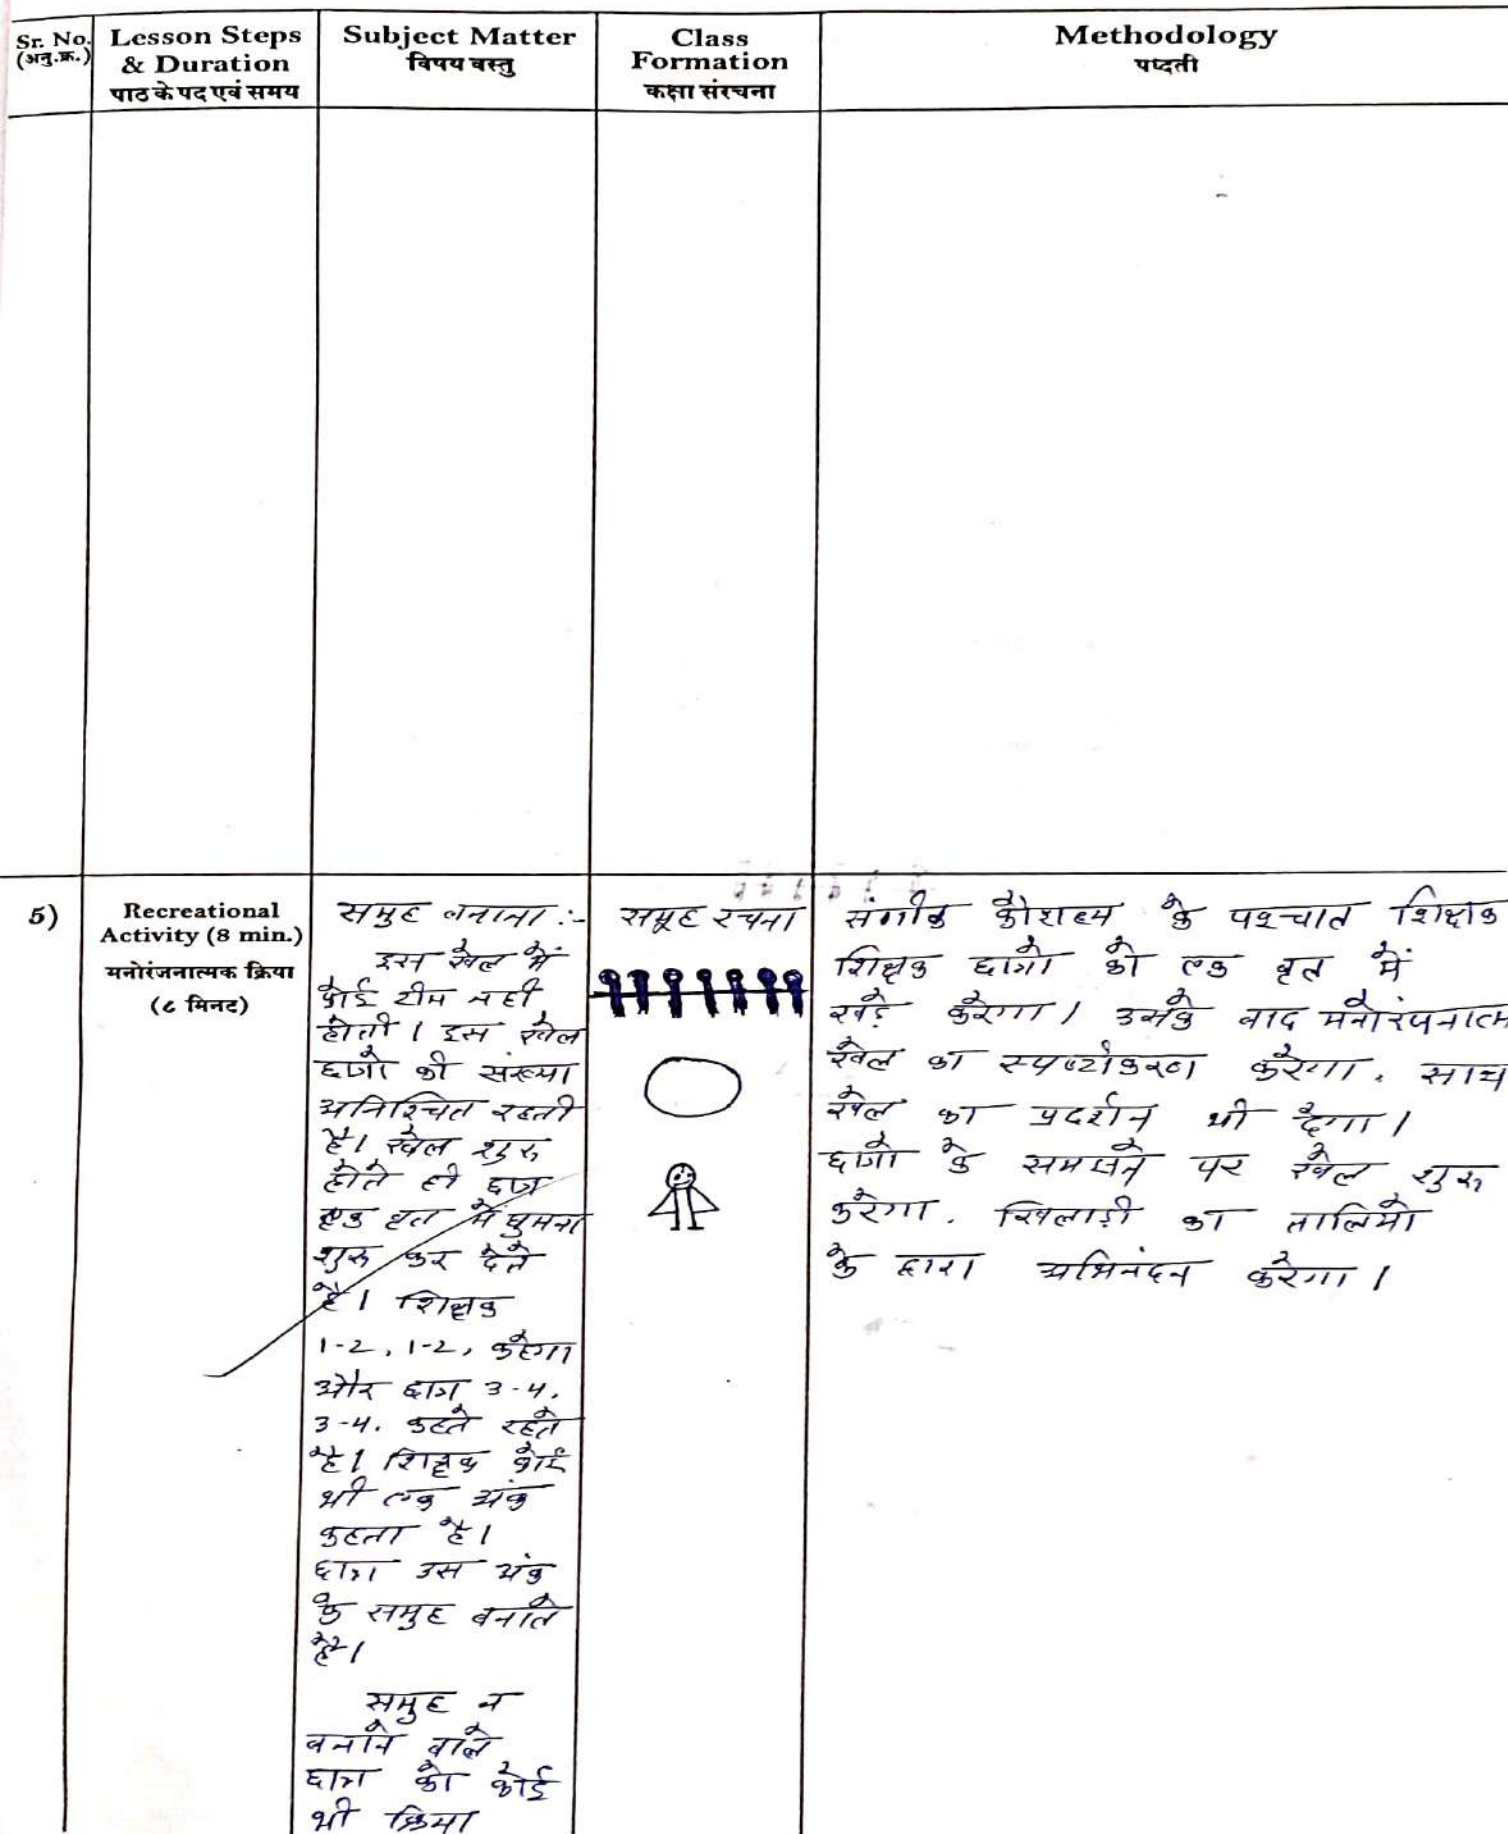 Sr. No. (अनु.क्र.)
Lesson Steps & Duration पाठ के पद एवं समय
Subject Matter विषय वस्तु
Class Formation कक्षा संरचना
Methodology पध्दती
5)
Recreational
Activity (8 min.)
मनोरंजनात्मक क्रिया
(८ मिनट)
समुह बनाना :-
इस खेल में
कोई टीम नही
होती। इस खेल
छात्रो की संख्या
अनिश्चित रहती
है। खेल शुरु
होते ही छात्र
एक वृत में घुमना
शुरू कर देते
है। शिक्षक
1-2, 1-2, कहेगा
और छात्र 3-4.
3-4. कहते रहते
है। शिक्षक कोई
भी एक अंक
कहता है।
छात्र उस अंक
के समुह बनाते
है।
समुह न
बनाने वाले
छात्र को कोई
भी क्रिया
समूह रचना
के पश्चात शिक्षक
शिक्षक छात्रो को एक वृत में
खड़े करेगा। उसके बाद मनोरंजनात्म
खेल का स्पष्टीकरण करेगा. साथ
खेल का प्रदर्शन भी देगा।
छात्रो के समझने पर खेल शुरू
करेगा. खिलाड़ी का तालियो
के द्वारा अभिनंदन करेगा।